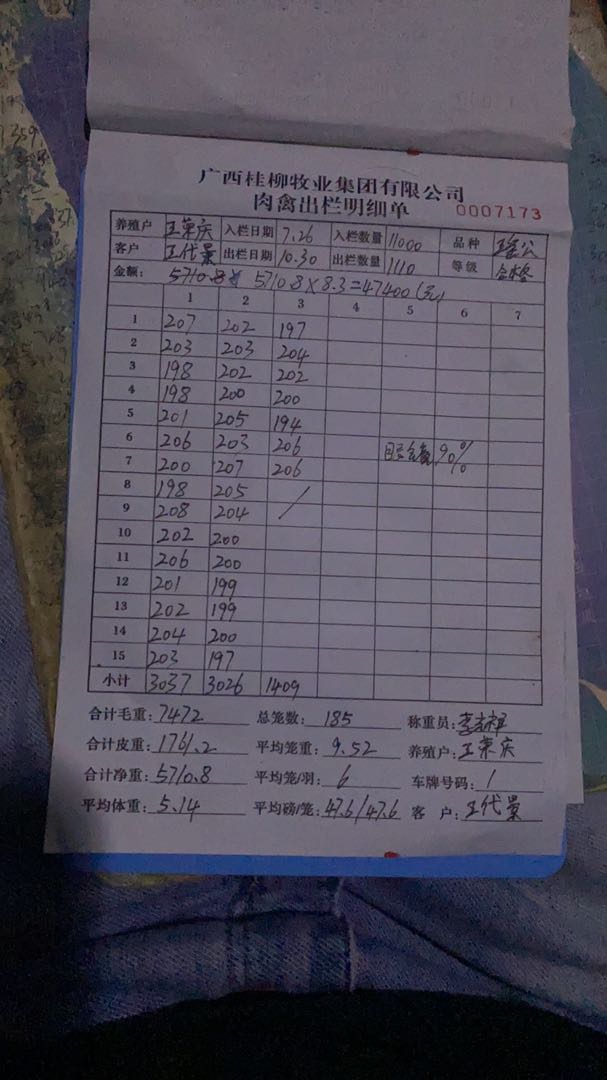 广西桂柳牧业集团有限公司
肉禽出栏明细单 0007173
养殖户 王荣庆 入栏日期 7.26 入栏数量 11000 品种 瑶公
客户 王代景 出栏日期 10.30 出栏数量 1110 等级 合格
金额: 5710.8 5710.8×8.3=47400(元)
1 2 3 4 5 6 7
1 207 202 197
2 203 203 204
3 198 202 202
4 198 200 200
5 201 205 194
6 206 203 206 90%
7 200 207 206
8 198 205
9 208 204 /
10 202 200
11 206 200
12 201 199
13 202 199
14 204 200
15 203 197
小计 3037 3026 1409
合计毛重: 7472 总笼数: 185 称重员:
合计皮重: 1761.2 平均笼重: 9.52 养殖户: 王荣庆
合计净重: 5710.8 平均笼/羽: 6 车牌号码: /
平均体重: 5.14 平均磅/笼: 47.6/47.6 客 户: 王代景